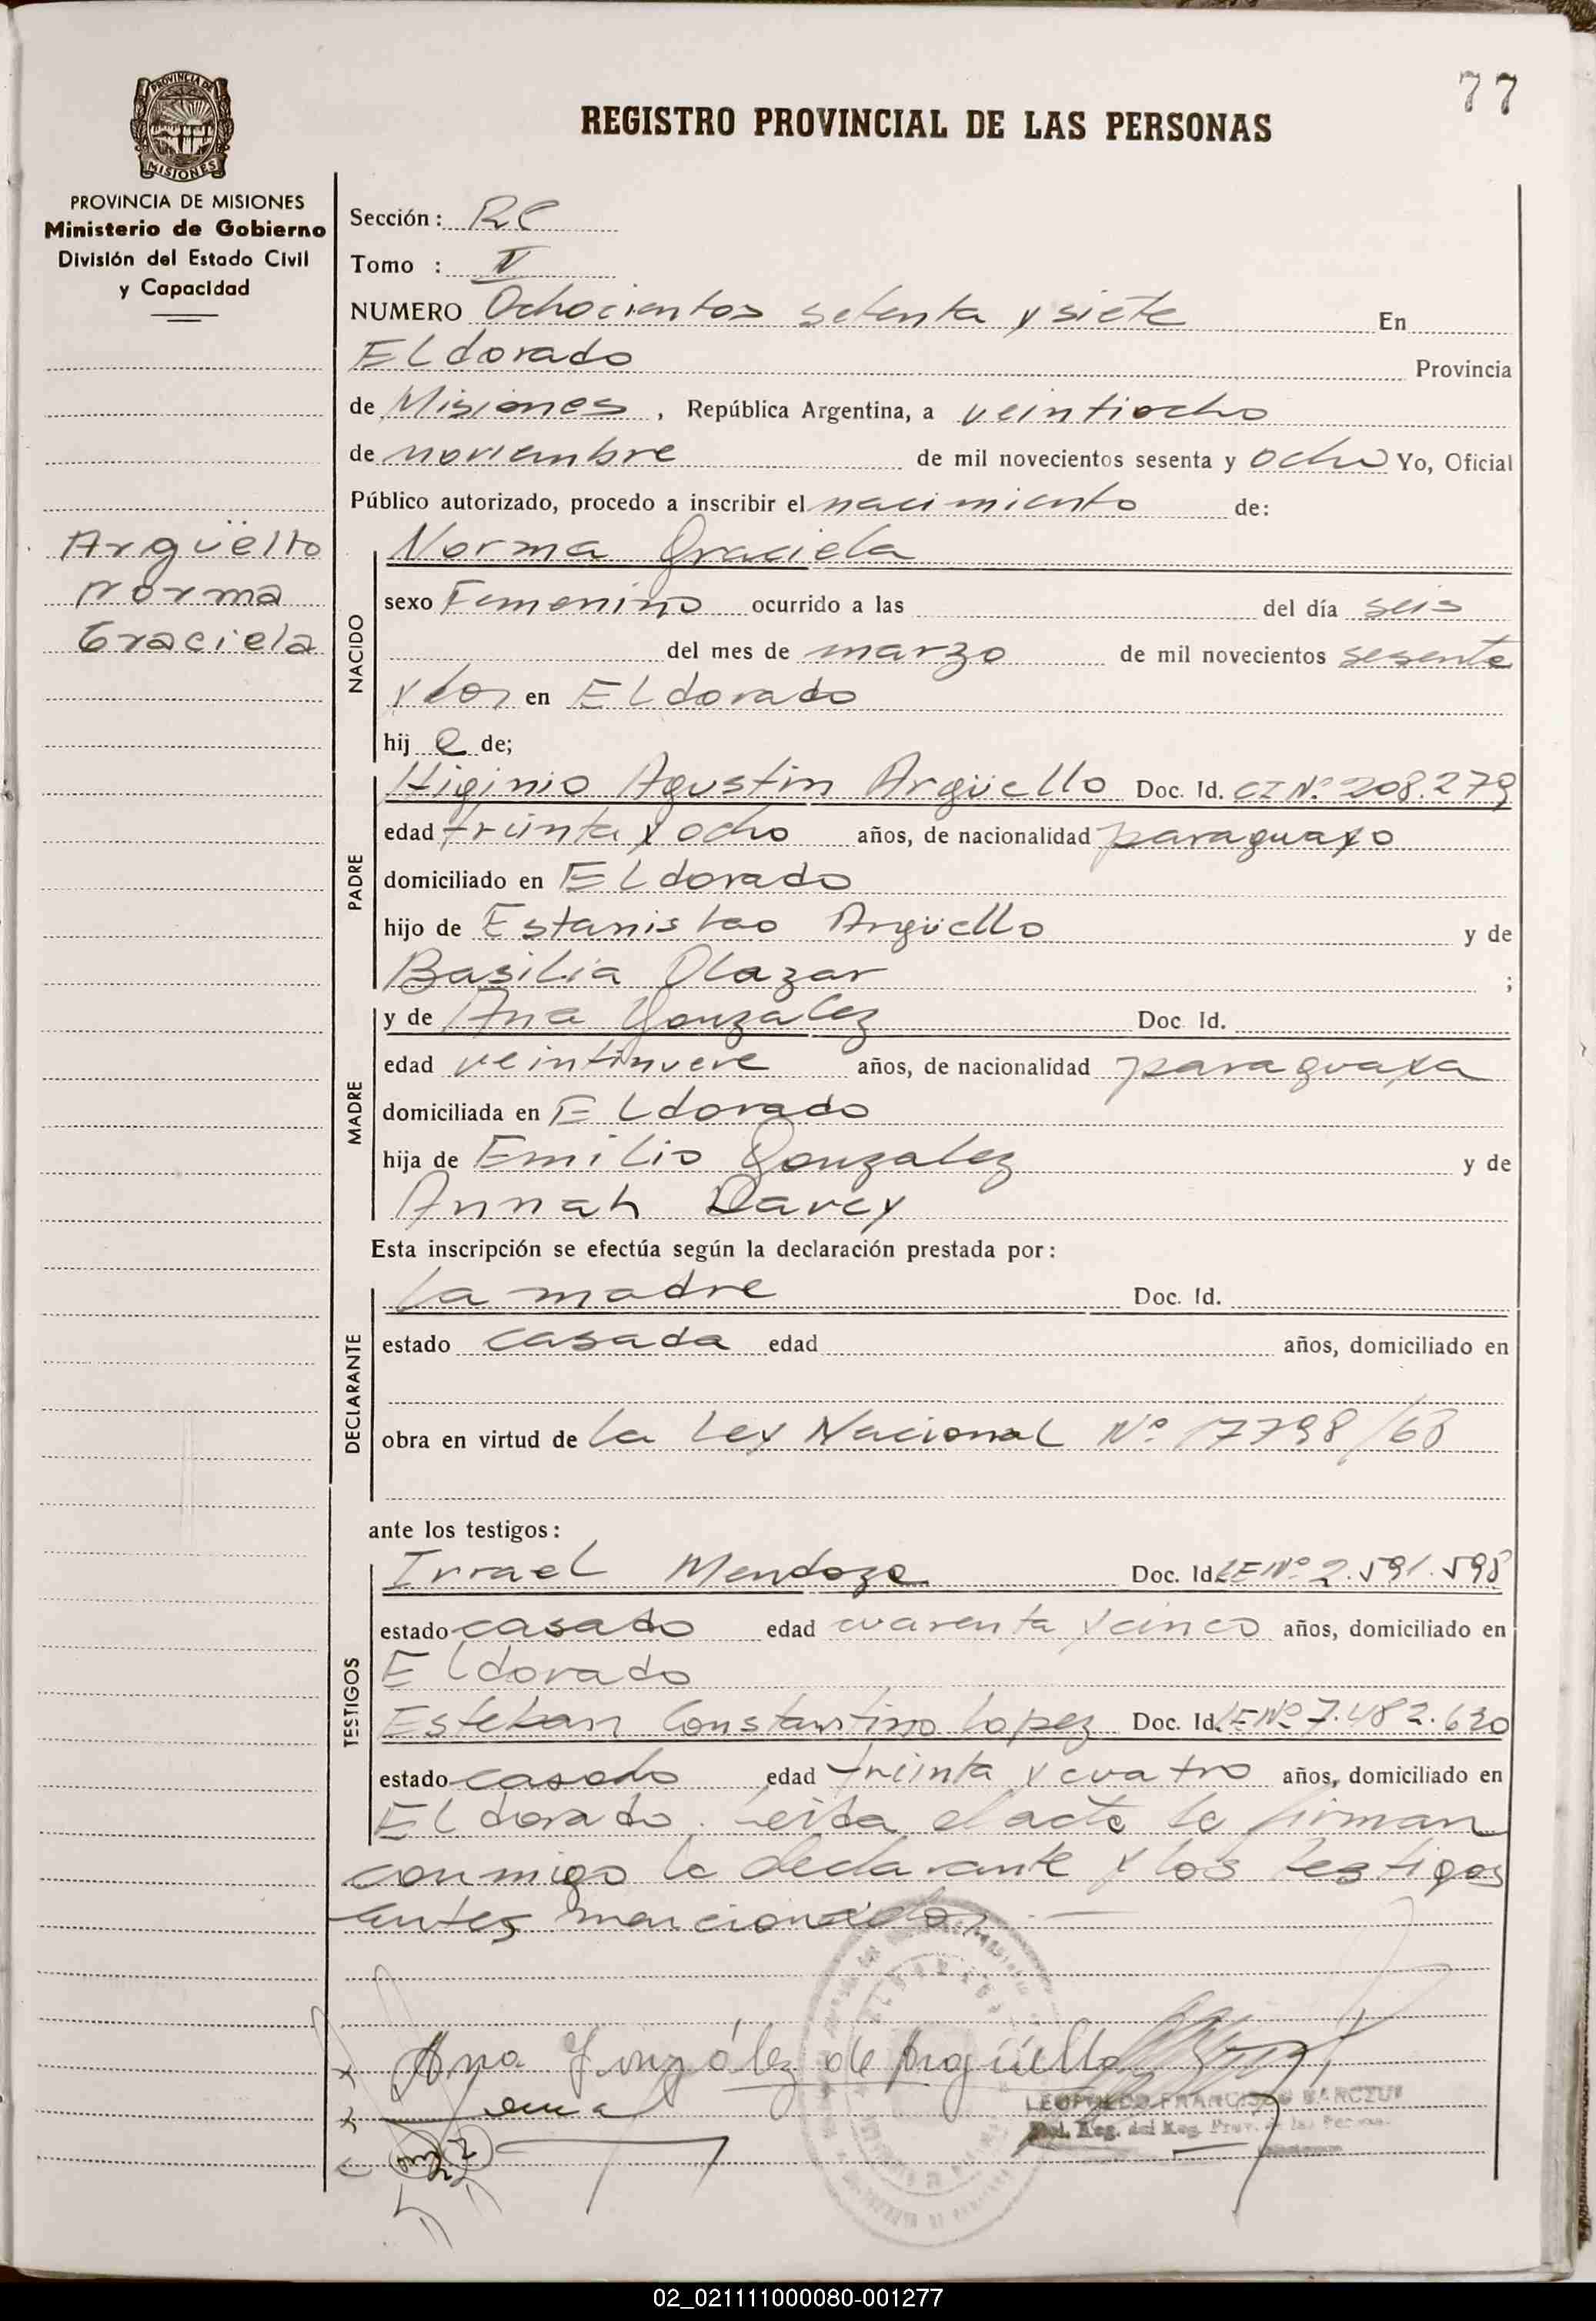 77
PROVINCIA DE
MISIONES
REGISTRO PROVINCIAL DE LAS PERSONAS
PROVINCIA DE MISIONES
Ministerio de Gobierno
División del Estado Civil
y Capacidad
Argüello
Norma
Graciela
Sección: RC
Tomo : V
NUMERO Ochocientos setenta y siete En
ELdorado Provincia
de Misiones, República Argentina, a veintiocho
de noviembre de mil novecientos sesenta y ocho Yo, Oficial
Público autorizado, procedo a inscribir el nacimiento de:
NACIDO
Norma Graciela
sexo Femenino ocurrido a las del día seis
del mes de marzo de mil novecientos sesenta
y dos en ELdorado
hij a de;
PADRE
Higinio Agustin Argüello Doc. Id. CI Nº 208.279
edad triinta y ocho años, de nacionalidad paraguayo
domiciliado en ELdorado
hijo de Estanislao Argüello y de
Basilia Olazar ;
MADRE
y de Ana Gonzalez Doc. Id.
edad veintinueve años, de nacionalidad paraguaya
domiciliada en ELdorado
hija de Emilio Gonzalez y de
Annah Darcy
Esta inscripción se efectúa según la declaración prestada por:
DECLARANTE
La madre Doc. Id.
estado casada edad años, domiciliado en
obra en virtud de la Ley Nacional Nº 17798/68
ante los testigos:
TESTIGOS
Irrael Mendoza Doc. Id. LE Nº 2.591.598
estado casado edad cuarenta y cinco años, domiciliado en
ELdorado
Esteban Constantino Lopez Doc. Id. LE Nº 7.482.630
estado casado edad triinta y cuatro años, domiciliado en
ELdorado. Leida el acta la firman
conmigo la declarante y los testigos
antes mencionados.—
Ana González de Argüello
LEOPOLDO FRANCISCO
Reg. del Reg. Prov. de las Personas
02_021111000080-001277